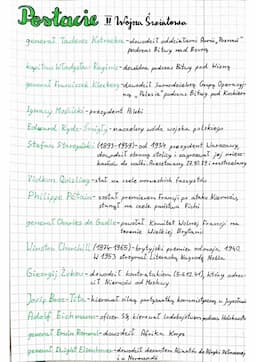 Postacie II Wojna Światowa
generał Tadeusz Kutrzeba - dowodził oddziałami Armii „Poznań”
podczas Bitwy nad Bzurą
kapitan Władysław Raginis - dowódca podczas Bitwy pod Wizną
generał Franciszek Kleeberg - dowodził Samodzielną Grupą Operacyj-
ną „Polesie” podczas Bitwy pod Kockiem
Ignacy Mościcki - prezydent Polski
Edward Rydz-Śmigły - naczelny wódz wojska polskiego
Stefan Starzyński (1893-1939) - od 1934 prezydent Warszawy,
dowodził obroną stolicy i zagrzewał jej miesz-
kańców do walki.
Vidkun Quisling - stał na czele norweskich faszystów
Philippe Pétain - został premierem Francji po ataku Niemiec,
stanął na czele państwa Vichy
generał Charles de Gaulle - powołał Komitet Wolnej Francji na
terenie Wielkiej Brytanii
Winston Churchill (1874-1965) - brytyjski premier od maja 1940.
W 1953 otrzymał Literacką Nagrodę Nobla
Gieorgij Żukow - dowodził kontratakiem (5-6.12.41), który odrzu-
cił Niemców od Moskwy
Josip Broz-Tito - kierował silną partyzantką komunistyczną w Jugosławii
Adolf Eichmann - oficer SS, kierował ludobójstwem podczas Holokaustu
generał Erwin Rommel - dowodził Afrika Korps
generał Dwight Eisenhower - dowodził desantem Aliantów
w Normandii